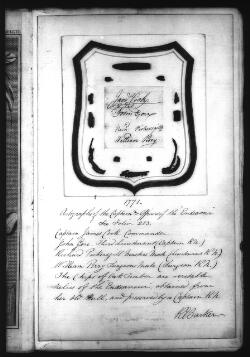 John Gore
William Perry
1771.
Autographs of the Captain & Officers of the Endeavour
See Folio 203.
Captain James Cook Commander
John Gore Third Lieutenant (Captain R.N.)
Richard Pickersgill Master's Mate (Lieutenant R.N.)
William Perry Surgeon's Mate (Surgeon R.N.)
The Chips of Oak Timber are veritable
relics of the Endeavour, obtained from
her old Hull, and preserved by a Captain R.N.